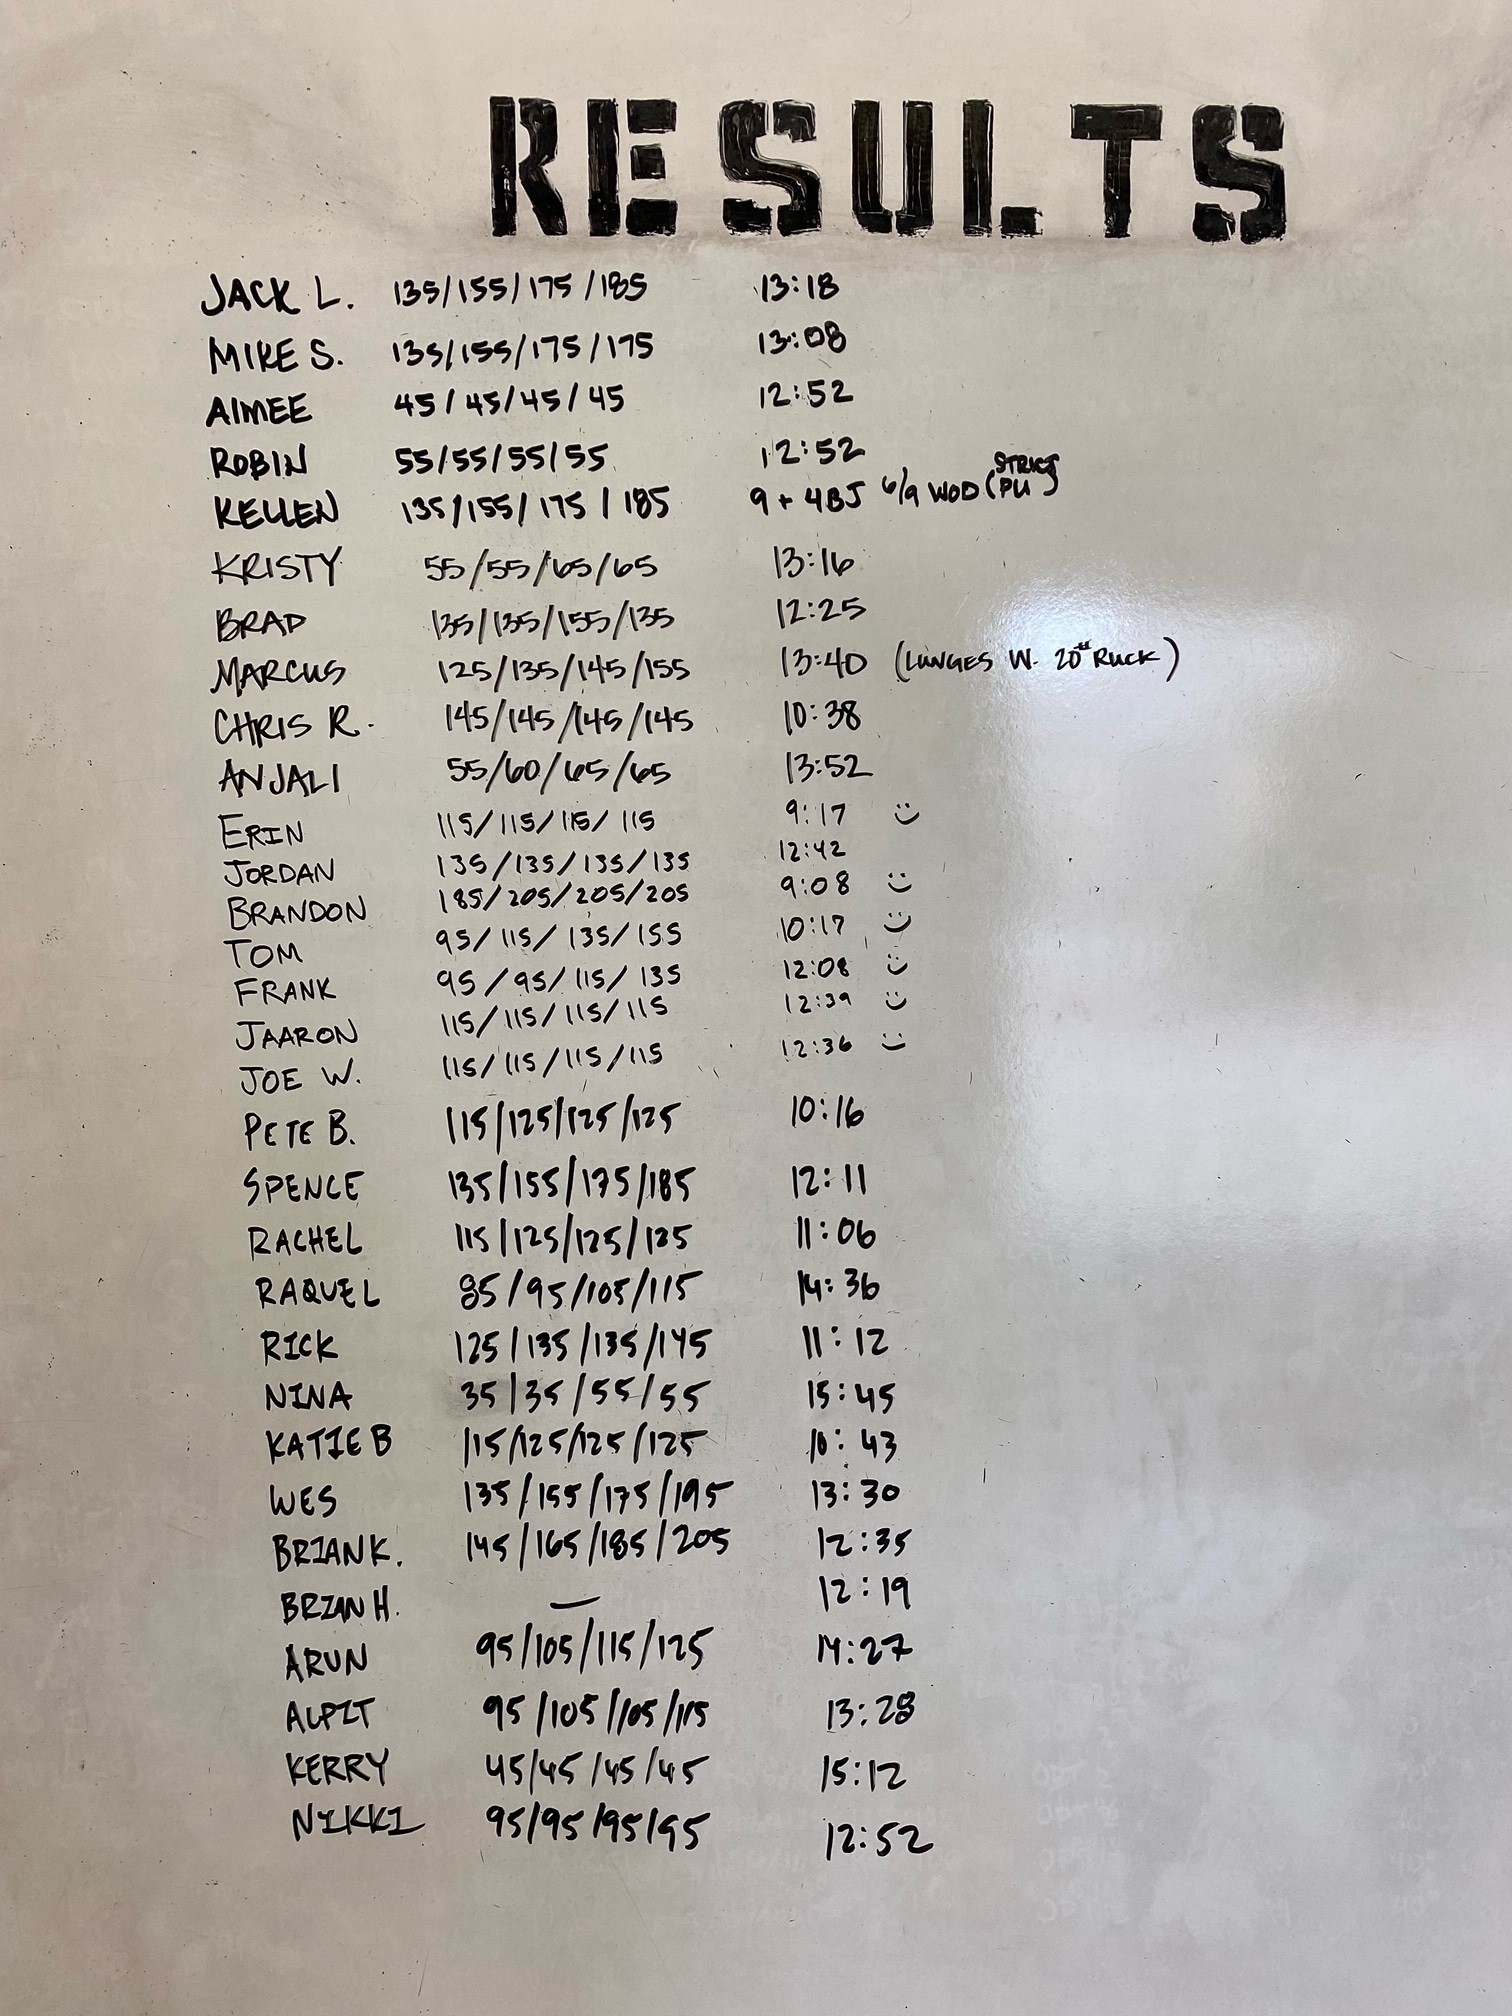 RESULTS
JACK L. 135/155/175/185 13:18
MIKE S. 135/155/175/175 13:08
AIMEE 45/45/45/45 12:52
ROBIN 55/55/55/55 12:52
KELLEN 135/155/175/185 9+4BJ 6/9 WOD (STRICT PU)
KRISTY 55/55/65/65 13:16
BRAD 135/135/155/135 12:25
MARCUS 125/135/145/155 13:40 (LUNGES W. 20# RUCK)
CHRIS R. 145/145/145/145 10:38
ANJALI 55/60/65/65 13:52
ERIN 115/115/115/115 9:17 :)
JORDAN 135/135/135/135 12:42
BRANDON 185/205/205/205 9:08 :)
TOM 95/115/135/155 10:17 :)
FRANK 95/95/115/135 12:08 :)
JAARON 115/115/115/115 12:39 :)
JOE W. 115/115/115/115 12:36 :)
PETE B. 115/125/125/125 10:16
SPENCE 135/155/175/185 12:11
RACHEL 115/125/125/125 11:06
RAQUEL 85/95/105/115 14:36
RICK 125/135/135/145 11:12
NINA 35/35/55/55 15:45
KATIE B 115/125/125/125 10:43
WES 135/155/175/195 13:30
BRIAN K. 145/165/185/205 12:35
BRIAN H. — 12:19
ARUN 95/105/115/125 14:27
ALPIT 95/105/105/115 13:28
KERRY 45/45/45/45 15:12
NIKKI 95/95/95/95 12:52